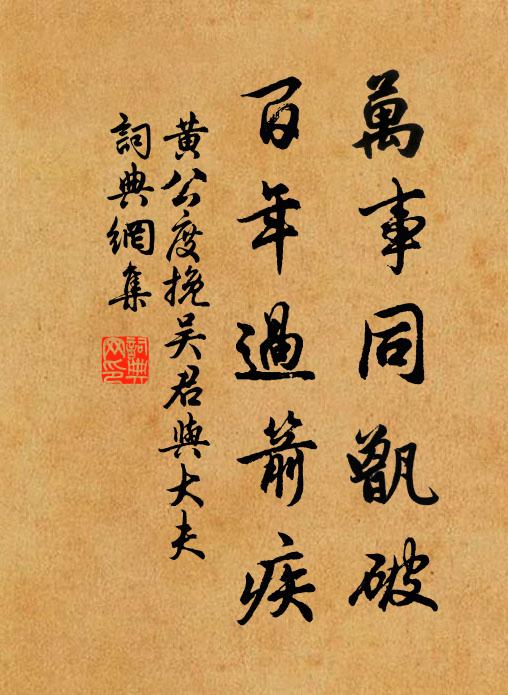 萬事同甑破
百年過箭疾
黄公度挽吴君與大夫
詞典網集
詞典網印